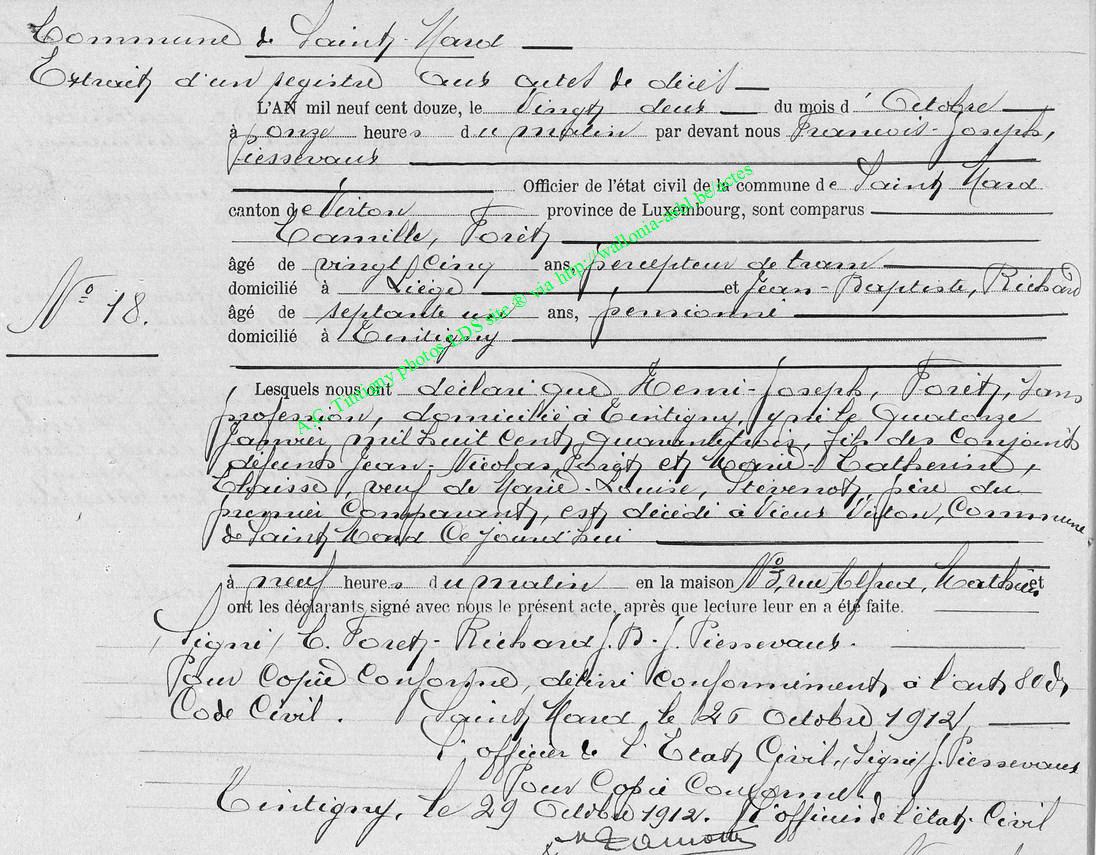 Commune de Saint-Mard
Extrait d'un registre aux actes de décès
L'AN mil neuf cent douze, le vingt deux du mois d'Octobre
à onze heures du matin par devant nous François-Joseph,
Piessevaux
Officier de l'état civil de la commune de Saint Mard
canton de Virton province de Luxembourg, sont comparus
Camille, Forêt
âgé de vingt cinq ans, percepteur de tram
domicilié à Liège et Jean-Baptiste, Richard
Nº 18.
âgé de septante un ans, pensionné
domicilié à Tintigny
Lesquels nous ont déclaré que Henri-Joseph, Forêt, sans
profession, domicilié à Tintigny, y né le quatorze
Janvier mil huit cent quarante trois, fils des conjoints
défunts Jean-Nicolas Forêt et Marie-Catherine,
Claisse, veuf de Marie-Louise, Stévenot, père du
premier Comparant, est décédé à Vieux Virton, Commune
de Saint Mard Ce jourd'hui
à neuf heures du matin en la maison Nº 3, rue Alfred, Mathieu et
ont les déclarants signé avec nous le présent acte, après que lecture leur en a été faite.
(Signé) C. Foret - Richard J. B. - J. Piessevaux.
Pour Copie Conforme, délivré conformément à l'art 80 du
Code Civil. Saint Mard, le 26 Octobre 1912
l'officier de l'Etat Civil, (Signé) J. Piessevaux
Pour Copie Conforme.
Tintigny, le 29 Octobre 1912. l'officier de l'état-Civil
A.G. Tintigny photos LDS site ® via http://wallonia-aebl.be/actes